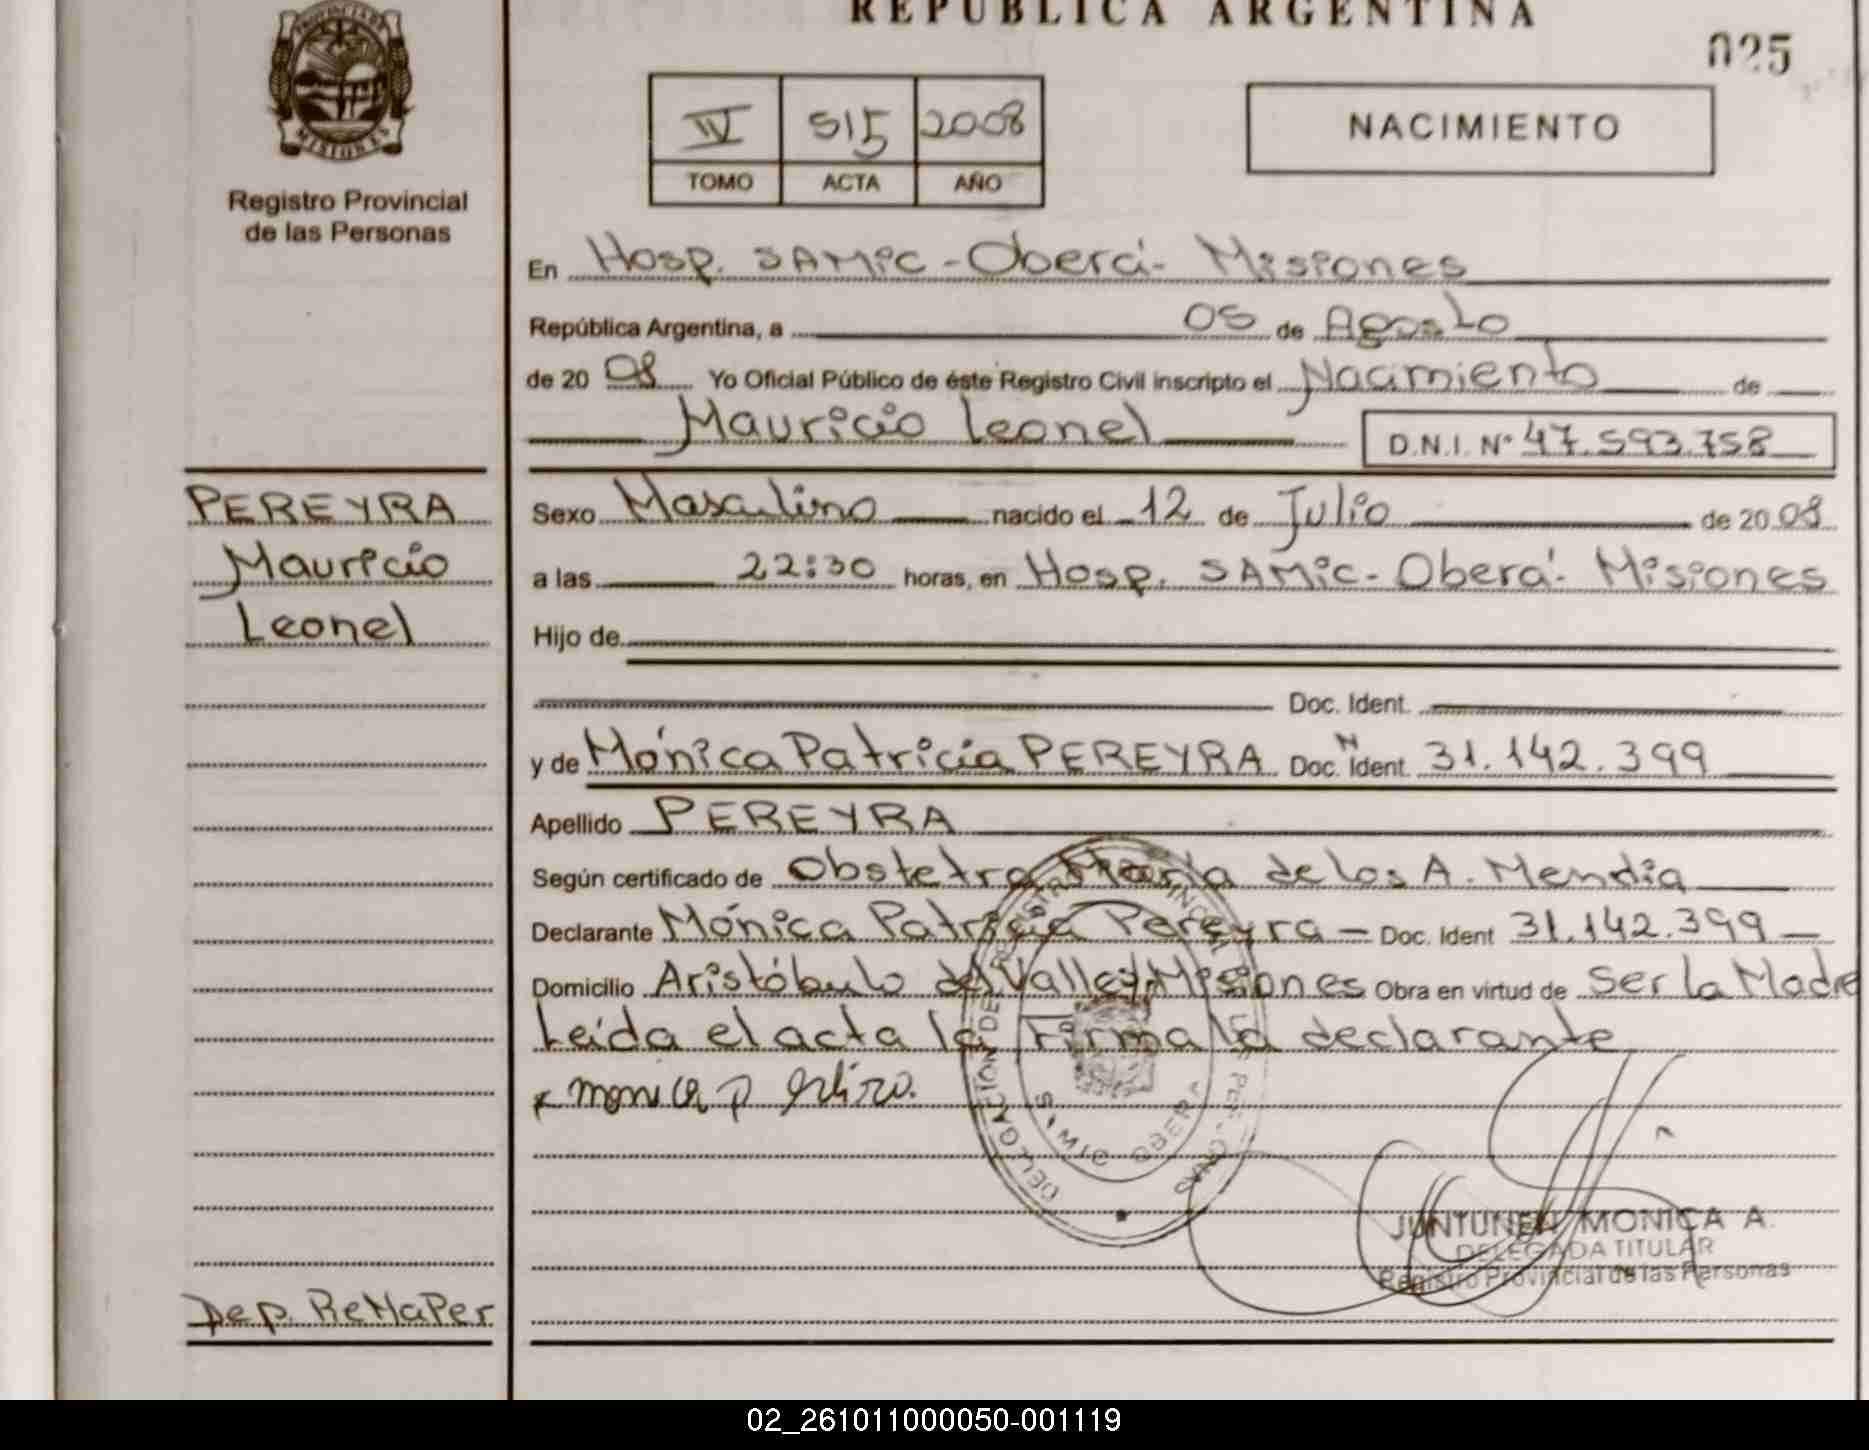 REPUBLICA ARGENTINA
025
PROVINCIA DE
MISIONES
Registro Provincial
de las Personas
IV 515 2008
TOMO ACTA AÑO
NACIMIENTO
En Hosp. SAMIC - Oberá - Misiones
República Argentina, a 05 de Agosto
de 20 08 Yo Oficial Público de éste Registro Civil inscripto el Nacimiento de
Mauricio Leonel D.N.I. Nº 47.593.758
PEREYRA
Mauricio
Leonel
Sexo Masculino nacido el 12 de Julio de 20 08
a las 22:30 horas, en Hosp. SAMIC - Oberá - Misiones
Hijo de
Doc. Ident.
y de Mónica Patricia PEREYRA Doc. N Ident. 31.142.399
Apellido PEREYRA
Según certificado de Obstetra María de los A. Mendia
Declarante Mónica Patricia Pereyra - Doc. Ident 31.142.399
Domicilio Aristóbulo del Valle, Misiones Obra en virtud de Ser la Madre
Leída el acta la Firma la declarante
x monica p
DELEGACION DE
SAMIC OBERA
JUNTUNEN MONICA A.
DELEGADA TITULAR
Registro Provincial de las Personas
Dep. ReNaPer
02_261011000050-001119